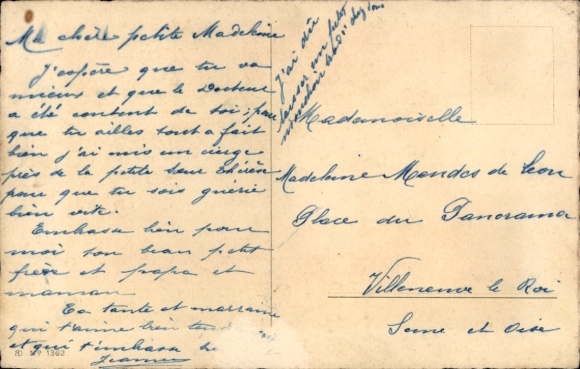 Ma chère petite Madeleine
J'espère que tu va
mieux et que le Docteur
a été content de toi; pour
que tu ailles tout a fait
bien j'ai mis un cierge
près de la petite Sœur Thérèse
pour que tu sois guérie
bien vite.
Embrasse bien pour
moi ton beau petit
frère et papa et
maman
Ta tante et marraine
qui t'aime bien
et qui t'embrasse
Jeanne
J'ai dû
laisser un petit
mouchoir chez vous
Mademoiselle
Madeleine Mendes de Leon
Place du Panorama
Villeneuve le Roi
Seine et Oise
No 1362